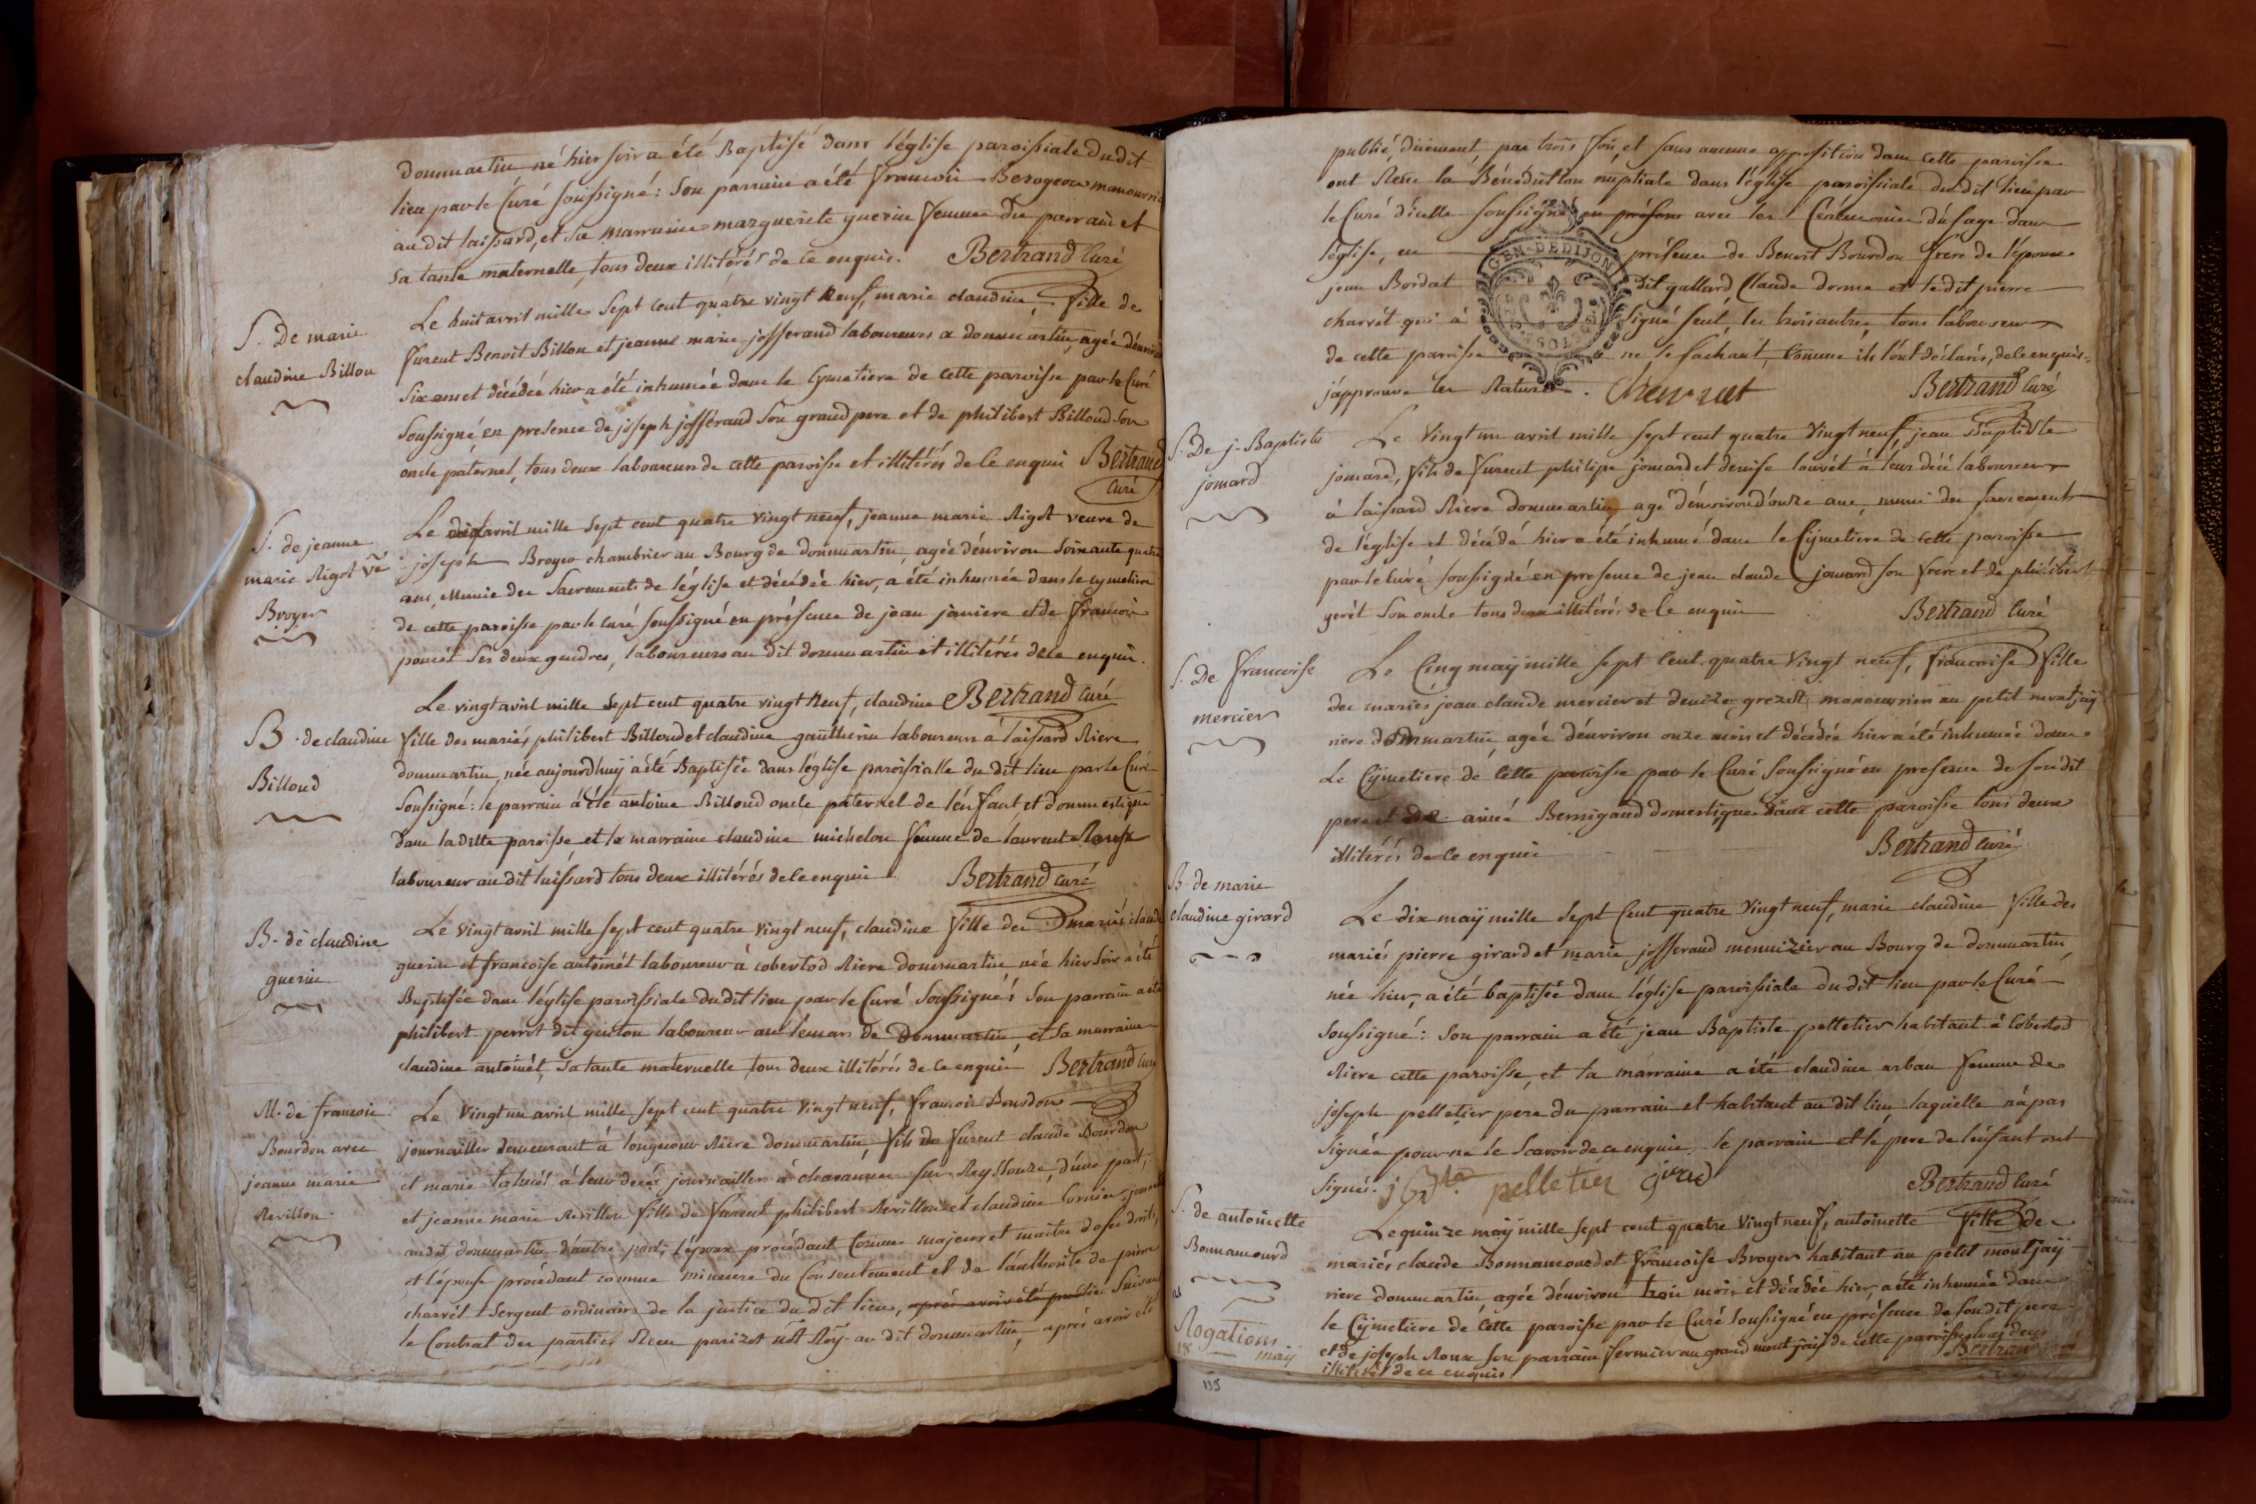 dommartin né hier soir a été Baptisé dans l'église paroissiale du dit
lieu par le Curé soussigné: son parrain a été francois manouvrier
au dit laissard, et sa marraine marguerite guerin femme du parrain et
sa tante maternelle, tous deux illitérés de ce enquis. Bertrand Curé
S. De marie
claudine Billon
Le huit avril mille sept cent quatre vingt neuf, marie claudine fille de
furent Benoit Billon et jeanne marie josserand laboureurs a dommartin, agée d'environ
six ans et décédée hier a été inhumée dans le Cymetiere de cette paroisse par le Curé
soussigné, en presence de joseph josserand son grand pere et de philibert Billoud son
oncle paternel, tous deux laboureurs de cette paroisse et illitérés de ce enquis Bertrand
Curé
S. de jeanne
marie Rigot vë
Broyer
Le avril mille sept cent quatre vingt neuf, jeanne marie Rigot veuve de
joseph Broyer chambrier au Bourg de dommartin, agée d'environ soixante quatre
ans, Munie des Sacrements de l'église et décédée hier, a été inhumée dans le cymetiere
de cette paroisse par le curé soussigné en présence de jean janiere et de francois
ses deux gendres, laboureurs au dit dommartin et illitérés de ce enquis.
Bertrand Curé
B. de claudine
Billoud
Le vingt avril mille sept cent quatre vingt neuf, claudine
fille des mariés philibert Billoud et claudine gautherin laboureurs à laissard Riere
dommartin, née aujourd'huÿ a été Baptisée dans l'église paroissialle du dit lieu par le Curé
soussigné: le parrain a été antoine Billoud oncle paternel de l'enfant et domestique
dans la ditte paroisse et la marraine claudine michelon femme de laurent
laboureur au dit laissard tous deux illitérés de ce enquis Bertrand curé
B. de claudine
guerin
Le vingt avril mille sept cent quatre vingt neuf, claudine fille des mariés claude
guerin et francoise antoinét laboureur à cobertod Riere dommartin née hier soir a été
Baptisée dans l'église paroissiale du dit lieu par le Curé soussigné: son parrain a été
philibert perrot dit guiton laboureur au de Dommartin, et sa marraine
claudine antoinét, sa tante maternelle tous deux illitérés de ce enquis Bertrand Curé
M. de francois
Bourdon avec
jeanne marie
Revillon
Le vingt un avril mille sept cent quatre vingt neuf, francois Bourdon
journaillier demeurant à longuour Riere dommartin, fils de furent claude Bourdon
et marie à leur décés journailliers à chavannes sur Reyssouze, d'une part;
et jeanne marie Revillon fille de furent philibert Revillon et claudine
au dit dommartin d'autre part; l'époux procédant comme majeur et maître de ses droits,
et l'épouse procédant comme mineure du Consentement et de l'authorité de pierre
charvét Sergent ordinaire de la justice du dit lieu, après avoir été publié Suivant
le Contrat des parties Reçu parizot nõt Roÿ. au dit dommartin, après avoir été
publié, duement par trois fois, et sans aucune opposition dans cette paroisse
ont Recu la Bénédiction nuptiale dans l'église paroissiale du dit lieu par
le Curé d'icelle soussigné en présence avec les Cérémonies d'usage dans
l'église, en présence de Benoit Bourdon frere de l'époux
jean Bordat dit gallard Claude dorme et le dit pierre
charvét qui a signé seul, les trois autres, tous laboureurs
de cette paroisse ne le sachant, comme ils l'ont déclarés, de ce enquis.
j'approuve les Ratures. Charvet Bertrand Curé
GEN. DE DIJON
S. De j. Baptiste
jomard
Le vingt un avril mille sept cent quatre vingt neuf, jean Baptiste
jomard, fils de furent philipe jomard et denise louvét à leur décé laboureurs
à laissard Riere dommartin agé d'environ douze ans, muni des sacrements
de l'église et décédé hier a été inhumé dans le Cÿmetiere de cette paroisse
par le curé soussigné en presence de jean claude jomard son frere et de philibert
son oncle tous deux illitérés de ce enquis Bertrand Curé
S. De francoise
mercier
Le Cinq maÿ mille sept cent quatre vingt neuf, francoise fille
des mariés jean claude mercier et denise manouvriers au petit montjaÿ
riere dommartin, agée d'environ onze mois et décédée hier a été inhumée dans
Le Cÿmetiere de cette paroisse par le Curé soussigné en presence de son dit
pere et de aimée Bernigaud domestique dans cette paroisse tous deux
illitérés de ce enquis Bertrand Curé
B. de marie
claudine girard
Le dix maÿ mille sept cent quatre vingt neuf, marie claudine fille des
mariés pierre girard et marie josserand menuizier au Bourg de dommartin,
née hier, a été baptisée dans l'église paroissiale du dit lieu par le Curé
soussigné: son parrain a été jean Baptiste pelletier habitant à Cobertod
Riere cette paroisse, et la marraine a été claudine arban femme de
joseph pelletier pere du parrain et habitant au dit lieu laquelle n'a pas
signée pour ne le scavoir de ce enquise. le parrain et le pere de l'enfant ont
signés. j Bte pelletier girard Bertrand Curé
S. de antoinette
Bonnamourd
Le quinze maÿ mille sept cent quatre vingt neuf, antoinette fille de
mariés claude Bonnamourd et francoise Broyer habitant au petit montjaÿ
riere dommartin agée d'environ trois mois et décédée hier, a été inhumée dans
le Cÿmetiere de cette paroisse par le Curé soussigné en présence de son dit pere
et de joseph Roux son parrain fermier au grand montjaÿ de cette paroisse tous deux
illitérés de ce enquis Bertrand
Rogations
18 maÿ
135